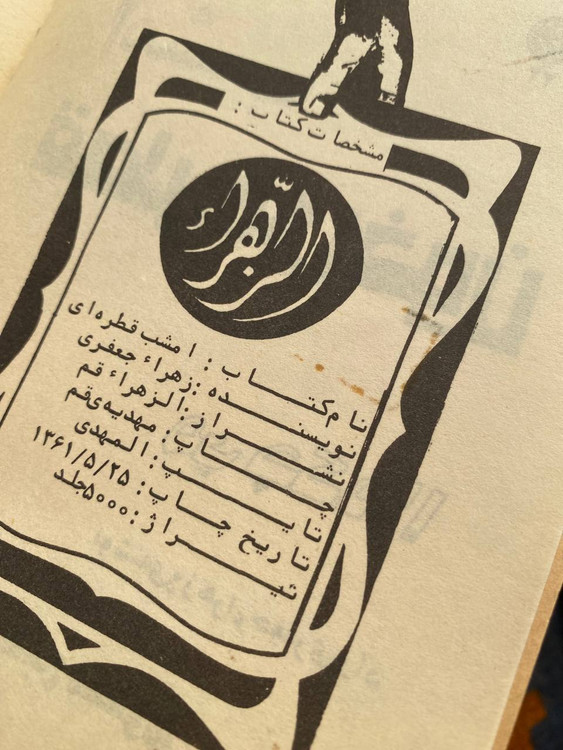 مشخصات کتاب :
الزّهراء
نام کتاب : امشب قطره ای
نویسنده : زهراء جعفری
نشر از : الزهراء قم
چاپ : مهدیه‌ی قم
تایپ : المهدی
تاریخ چاپ : ۱۳۶۱/۵/۲۵
تیراژ : ۵۰۰۰ جلد